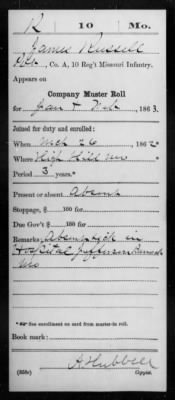 R 10 Mo.
James Russell
Pvt., Co. A, 10 Reg't Missouri Infantry.
Appears on
Company Muster Roll
for Jan & Feb, 1863.
Joined for duty and enrolled:
When 26, 1862*
Where High Hill Mo
Period 3 years.*
Present or absent Absent
Stoppage, $ 100 for
Due Gov't $ 100 for
Remarks: Absent sick in
Hospital Jefferson Barracks
Mo
*See enrollment on card from muster-in roll.
Book mark:
A Hubbell
(358c) Copyist.